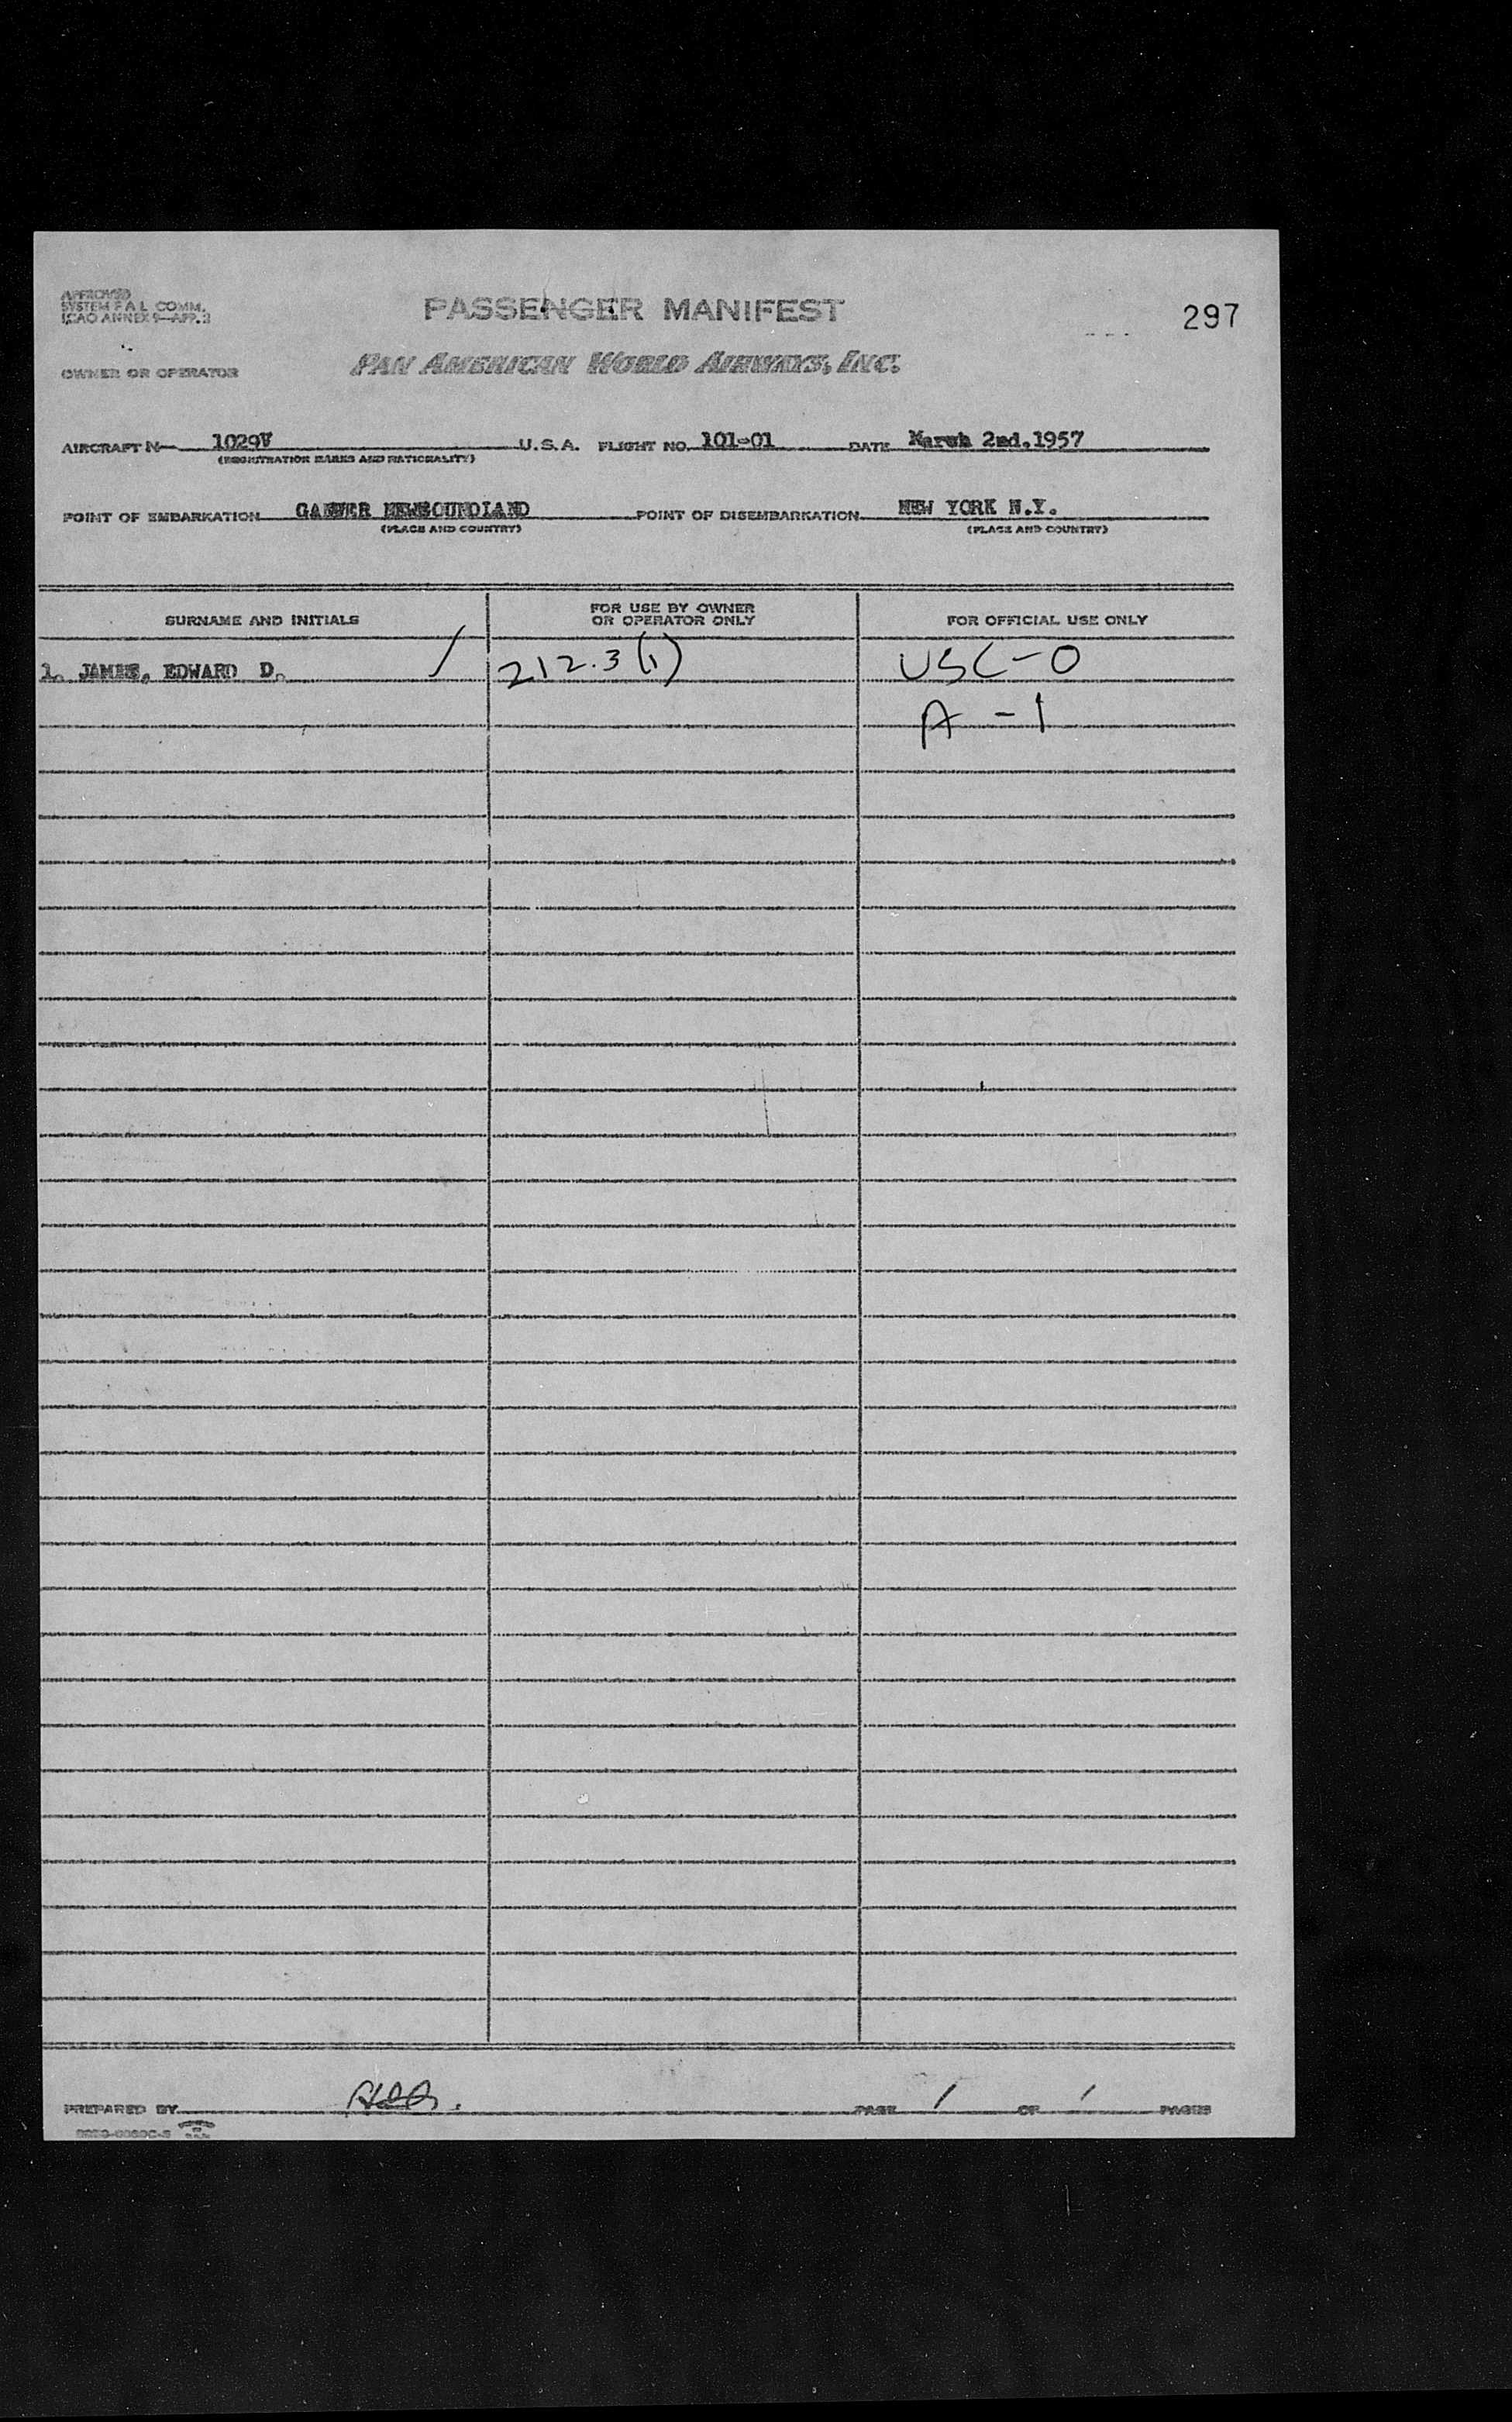 APPROVED
SYSTEM F.A.L. COMM.
ICAO ANNEX 9—APP. 3
PASSENGER MANIFEST
297
OWNER OR OPERATOR
PAN AMERICAN WORLD AIRWAYS, INC.
AIRCRAFT N— 1029V U.S.A. FLIGHT NO. 101-01 DATE March 2nd.1957
(REGISTRATION MARKS AND NATIONALITY)
POINT OF EMBARKATION GANDER NEWFOUNDLAND POINT OF DISEMBARKATION NEW YORK N.Y.
(PLACE AND COUNTRY) (PLACE AND COUNTRY)
SURNAME AND INITIALS
FOR USE BY OWNER
OR OPERATOR ONLY
FOR OFFICIAL USE ONLY
1. JAMES, EDWARD D. / 212.3(1) USC-0
A -1
PREPARED BY PAGE 1 OF 1 PAGES